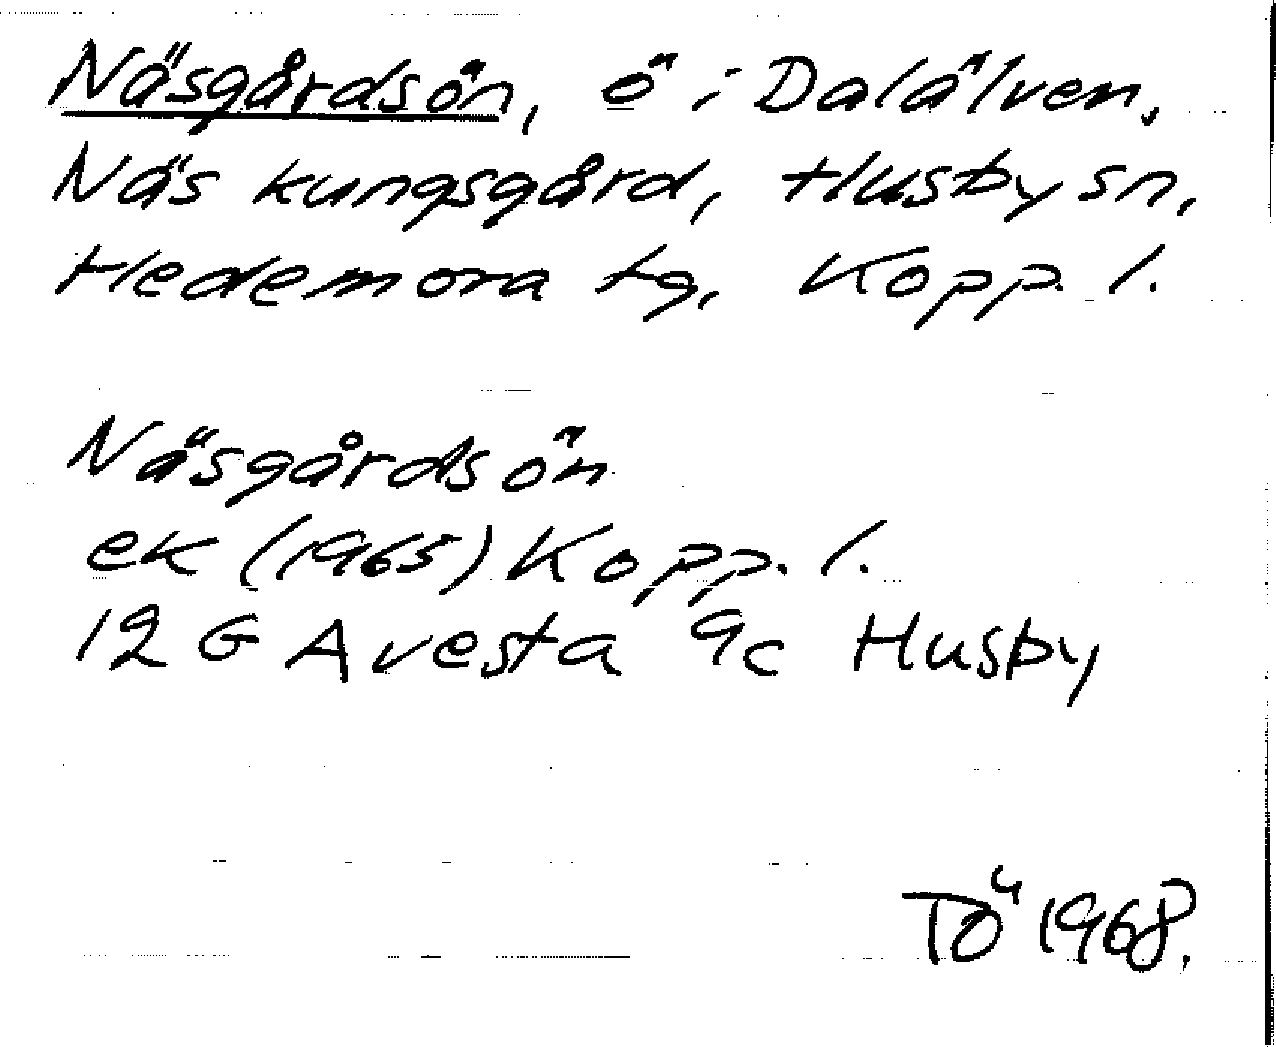 Näsgårdsön, ö i Dalälven,
Näs kungsgård, Husby sn,
Hedemora tg, Kopp. l.
Näsgårdsön
ek (1965) Kopp. l.
12 G Avesta 9c Husby
TÖ 1968.